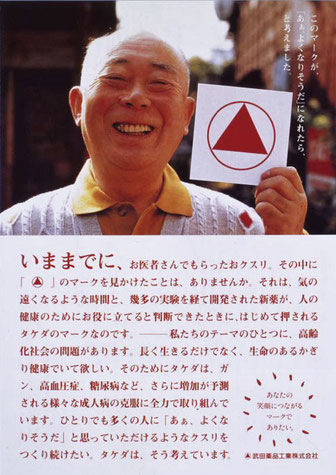 このマークが、
「あぁ、よくなりそうだ」になれたら。
と考えました
いままでに、お医者さんでもらったおクスリ。その中に
「 」のマークを見かけたことは、ありませんか。それは、気の
遠くなるような時間と、幾多の実験を経て開発された新薬が、人の
健康のためにお役に立てると判断できたときに、はじめて押される
タケダのマークなのです。――私たちのテーマのひとつに、高齢
化社会の問題があります。長く生きるだけでなく、生命のあるかぎ
り健康でいて欲しい。そのためにタケダは、ガ
ン、高血圧症、糖尿病など、さらに増加が予測
される様々な成人病の克服に全力で取り組んで
います。ひとりでも多くの人に「あぁ、よくな
りそうだ」と思っていただけるようなクスリを
つくり続けたい。タケダは、そう考えています。
あなたの
笑顔につながる
マークで
ありたい。
武田薬品工業株式会社